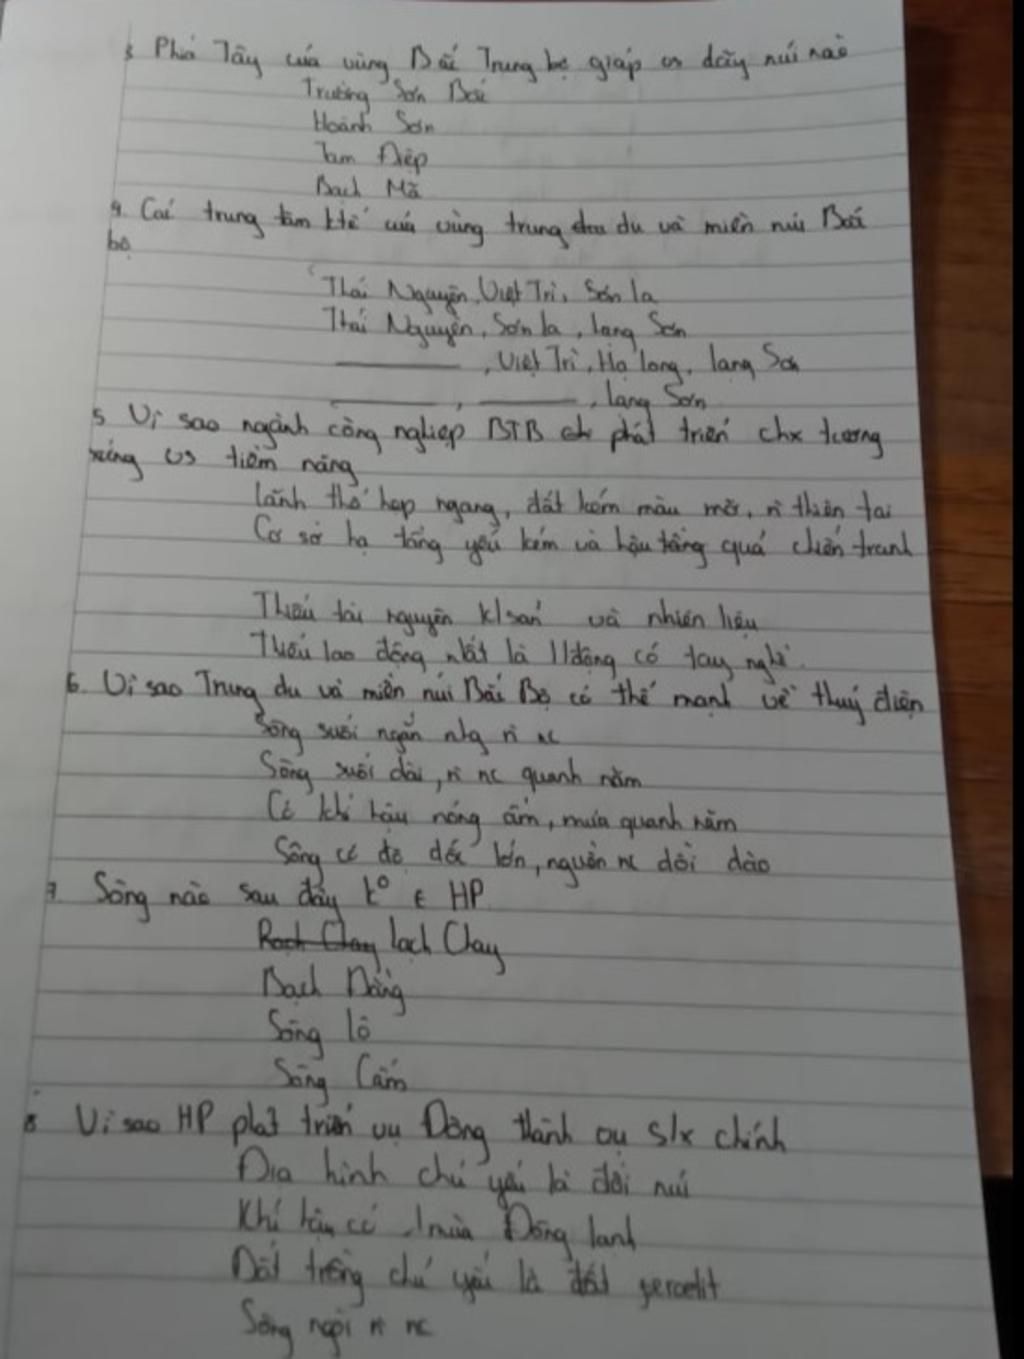 3 Phía Tây của vùng Bắc Trung bộ giáp vs dãy núi nào
Trường Sơn Bắc
Hoành Sơn
Tam Điệp
Bạch Mã
4. Các trung tâm ktế của vùng trung du và miền núi Bắc
bộ
Thái Nguyên, Việt Trì, Sơn la
Thái Nguyên, Sơn la, lạng Sơn
, Việt Trì, Hạ long, lạng Sơn
, lạng Sơn
5 Vì sao ngành công nghiệp BTB phát triển chx tương
xứng vs tiềm năng
lãnh thổ hẹp ngang, đất kém màu mỡ, n thiên tai
Cơ sở hạ tầng yếu kém và hậu quả chiến tranh
Thiếu tài nguyên k/sản và nhiên liệu
Thiếu lao động nhất là l/động có tay nghề.
6. Vì sao Trung du và miền núi Bắc Bộ có thế mạnh về thuỷ điện
Sông suối ngắn nhg n nc
Sông suối dài, n nc quanh năm
Có khí hậu nóng ẩm, mưa quanh năm
Sông có độ dốc lớn, nguồn nc dồi dào
7. Sông nào sau đây k⁰ ∈ HP
lạch Chay
Bạch Đằng
Sông lô
Sông Cấm
8 Vì sao HP phát triển vụ Đông thành vụ s/x chính
Địa hình chủ yếu là đồi núi
Khí hậu có 1 mùa Đông lạnh
Đất trồng chủ yếu là đất feralit
Sông ngòi n nc